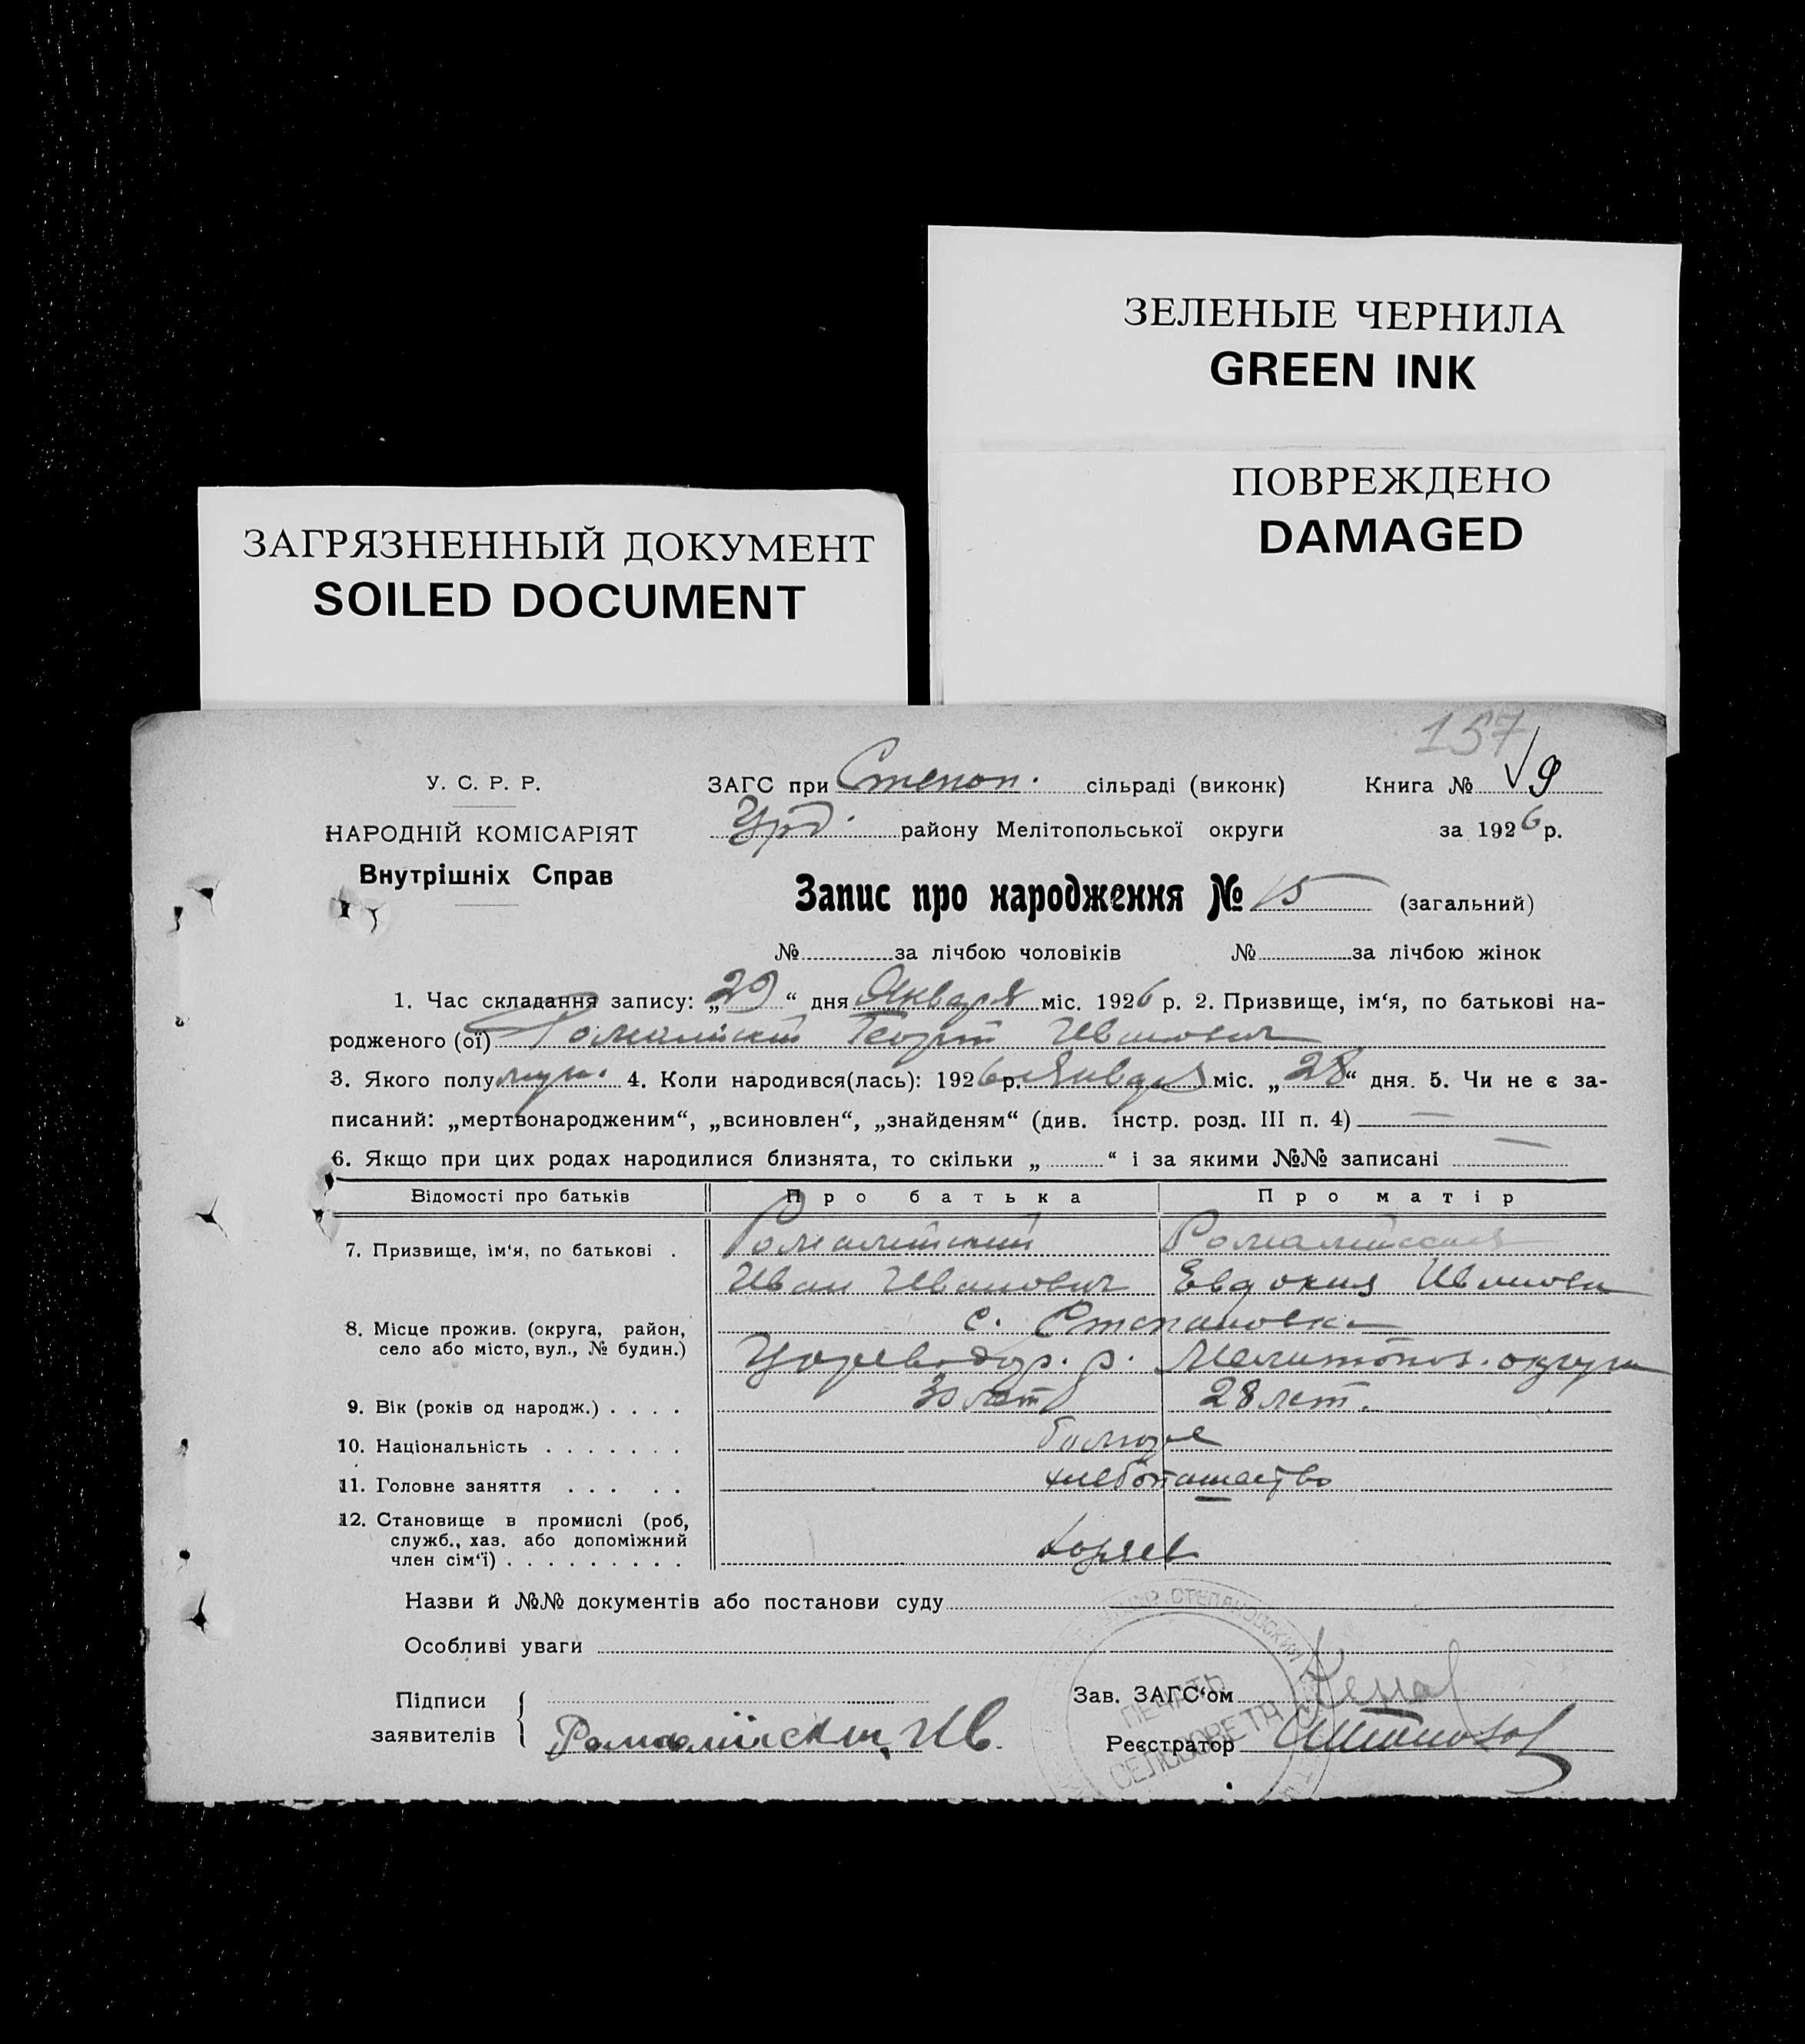 ЗЕЛЕНЫЕ ЧЕРНИЛА
GREEN INK
ПОВРЕЖДЕНО
DAMAGED
ЗАГРЯЗНЕННЫЙ ДОКУМЕНТ
SOILED DOCUMENT
157
У. С. Р. Р.
НАРОДНІЙ КОМІСАРІЯТ
Внутрішніх Справ
ЗАГС при Степан. сільраді (виконк) Книга № 9
району Мелітопольської округи за 1926 р.
Запис про народження № 15 (загальний)
№ за лічбою чоловіків № за лічбою жінок
1. Час складання запису: „29“ дня Января міс. 1926 р. 2. Призвище, ім‘я, по батькові на-
родженого (ої) Георгий Иванович
3. Якого полу муж. 4. Коли народився(лась): 1926 р. Января міс. „28“ дня. 5. Чи не є за-
писаний: „мертвонародженим“, „всиновлен“, „знайденям“ (див. інстр. розд. III п. 4) —
6. Якщо при цих родах народилися близнята, то скільки „ “ і за якими №№ записані —
Відомості про батьків Про батька Про матір
7. Призвище, ім‘я, по батькові .
Иван Иванович Евдокия Иванови
с. Степановка
8. Місце прожив. (округа, район,
село або місто, вул., № будин.)
Цареводар. р. Мелитопол. округи
9. Вік (років од народж.) . . . . 30 лет 28 лет.
10. Національність . . . . . . .
11. Головне заняття . . . . . хлебопашество
12. Становище в промислі (роб,
служб., хаз. або допоміжний
член сім‘ї) . . . . . . . . .
Назви й №№ документів або постанови суду
Особливі уваги
Підписи
заявителів
Зав. ЗАГС‘ом
Реєстратор
СТЕПАНОВСКИЙ
ПЕЧАТЬ
СЕЛЬСОВЕТА